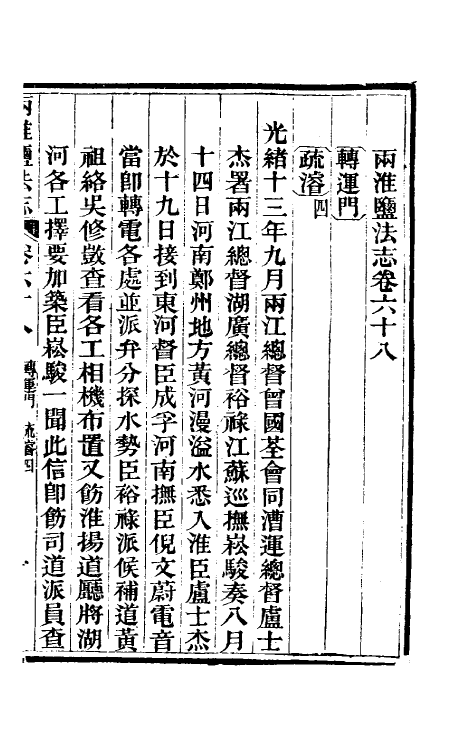 兩淮鹽法志卷六十八
轉運門
疏濬四
光緒十三年九月兩江總督曾國荃會同漕運總督盧士
杰署兩江總督湖廣總督裕祿江蘇巡撫崧駿奏八月
十四日河南鄭州地方黃河漫溢水悉入淮臣盧士杰
於十九日接到東河督臣成孚河南撫臣倪文蔚電音
當卽轉電各處並派弁分探水勢臣裕祿派候補道黃
祖絡吳修敳查看各工相機布置又飭淮揚道廳將湖
河各工擇要加築臣崧駿一聞此信卽飭司道派員查
兩淮鹽法志 卷六十八 轉運門 疏濬四 一